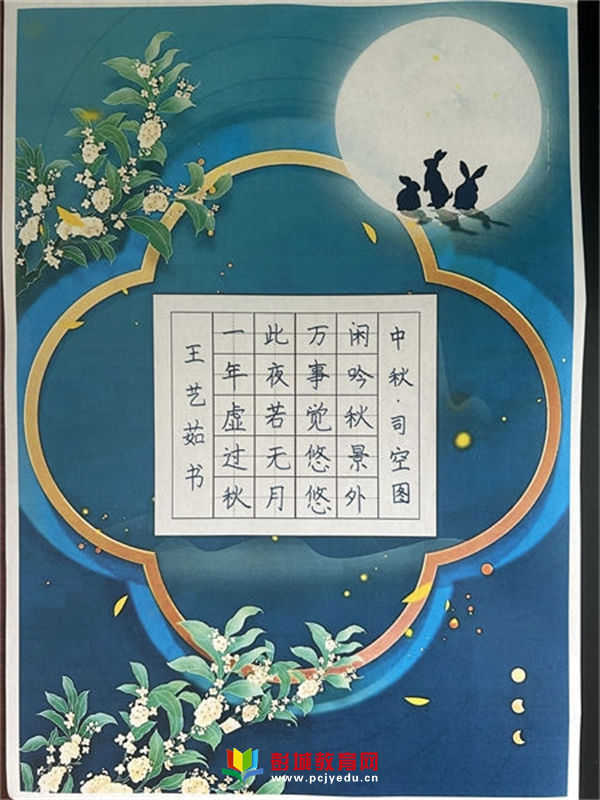 中秋·司空图
闲吟秋景外
万事觉悠悠
此夜若无月
一年虚过秋
王艺茹书
彭城教育网
www.pcjyedu.cn